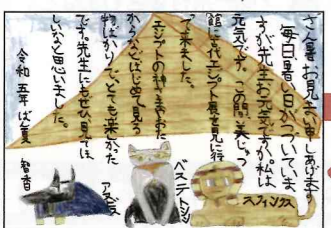 ざん暑お見まい申しあげます。
毎日暑い日がつづいていま
すが先生お元気ですか。私は
元気です。この間、美じゅつ
館に古代エジプト展を見に行
って来ました。
エジプトの神さまやお
からなどはじめて見る
物ばかりで、とても楽しかった
です。先生にもぜひ見てほ
しいなと思いました。
令和 五年 ばん夏
智香
アヌビス
バステト
スフィンクス